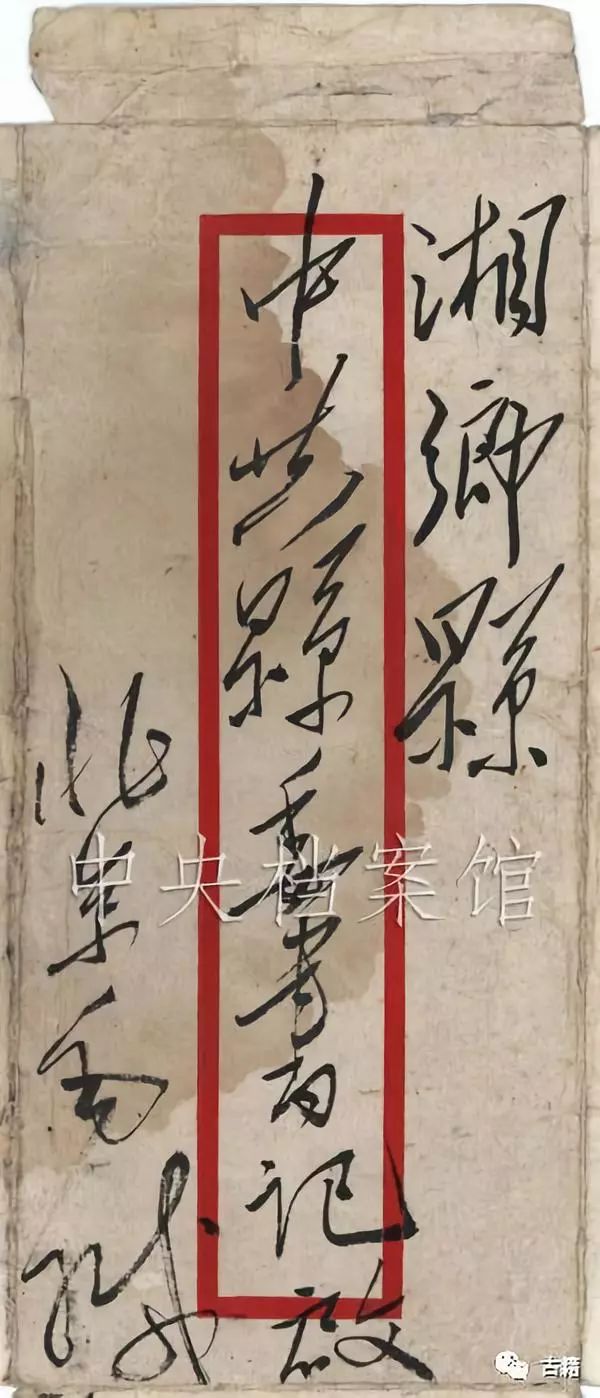 湘鄉縣
中共縣委書記啟
北京毛緘
中央档案馆
古籍